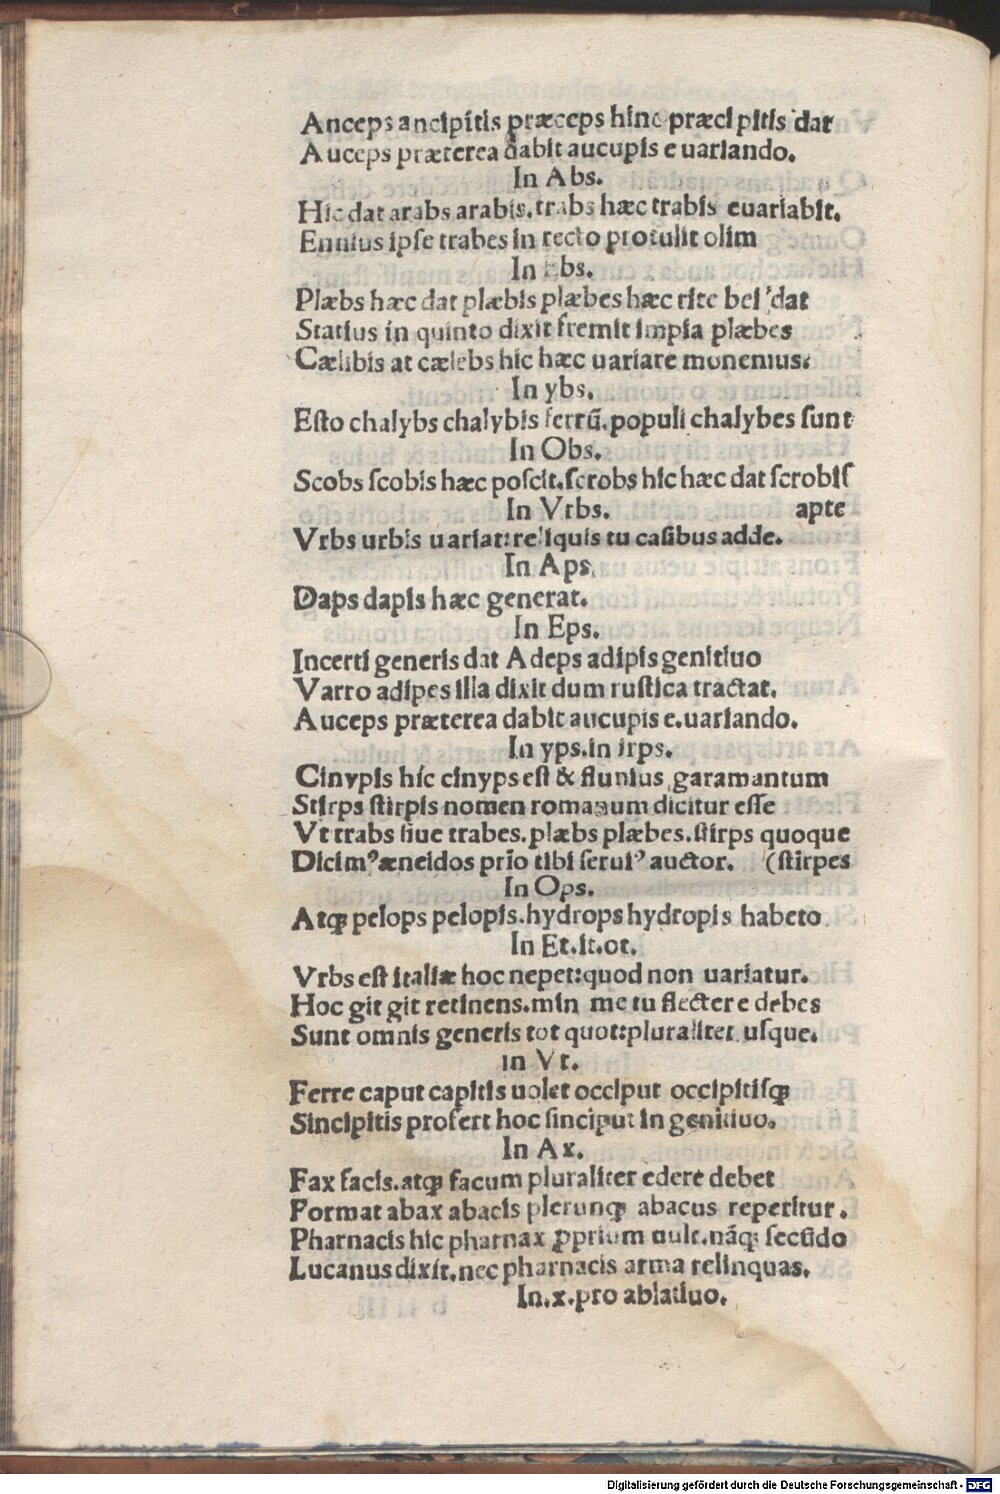 Anceps ancipitis præceps hinc præcipitis dat
Auceps præterea dabit aucupis e uariando.
In Abs.
Hic dat arabs arabis. trabs hæc trabis euariabit.
Ennius ipſe trabes in recto protulit olim
In Ebs.
Plæbs hæc dat plæbis plæbes hæc rite bei dat
Statius in quinto dixit fremit impia plæbes
Cælibis at cælebs hic hæc uariare monemus.
In ybs.
Eſto chalybs chalybis ferrū. populi chalybes ſunt
In Obs.
Scobs ſcobis hæc poſcit. ſcrobs hic hæc dat ſcrobis
In Vrbs. apte
Vrbs urbis uariat: reliquis tu caſibus adde.
In Aps.
Daps dapis hæc generat.
In Eps.
Incerti generis dat Adeps adipis genitiuo
Varro adipes illa dixit dum ruſtica tractat.
Auceps præterea dabit aucupis e. uariando.
In yps. in irps.
Cinypis hic cinyps eſt & fluuius garamantum
Stirps ſtirpis nomen romanum dicitur eſſe
Vt trabs ſiue trabes. plæbs plæbes. ſtirps quoque
Dicimꝰ æneidos prīo tibi ſeruiꝰ auctor. (ſtirpes
In Ops.
Atqꝫ pelops pelopis. hydrops hydropis habeto
In Et. it. ot.
Vrbs eſt italiæ hoc nepet: quod non uariatur.
Hoc git git retinens. min me tu flectere debes
Sunt omnis generis tot quot: pluraliter uſque.
in Vt.
Ferre caput capitis uolet occiput occipitiſqꝫ
Sincipitis profert hoc ſinciput in genitiuo.
In Ax.
Fax facis. atqꝫ facum pluraliter edere debet
Format abax abacis plerunqꝫ abacus reperitur.
Pharnacis hic pharnax ꝓprium uult. nāqꝫ ſecūdo
Lucanus dixit. nec pharnacis arma relinquas.
In. x. pro ablatiuo.
Digitalisierung gefördert durch die Deutsche Forschungsgemeinschaft - DFG